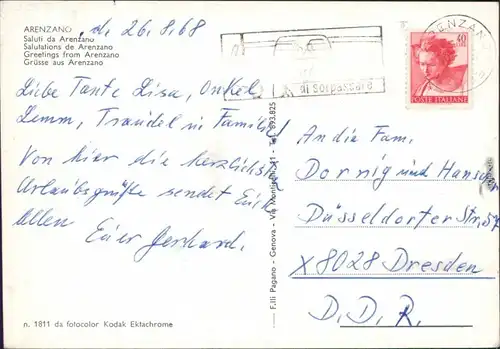 ARENZANO, d. 26.8.68
Saluti da Arenzano
Salutations de Arenzano
Greetings from Arenzano
Grüsse aus Arenzano
Liebe Tante Lisa, Onkel
Traudel u Familie!
Von hier die herzlichsten
Urlaubsgrüße sendet Euch
Allen
Euer Gerhard.
n. 1811 da fotocolor Kodak Ektachrome
F.lli Pagano - Genova - Via Monticelli 11 - Tel. 893.825
di sorpassare
ARENZANO
40
POSTE ITALIANE
An die Fam.
Dornig und
Düsseldorfer Str. 57
X 8028 Dresden
D. D. R.